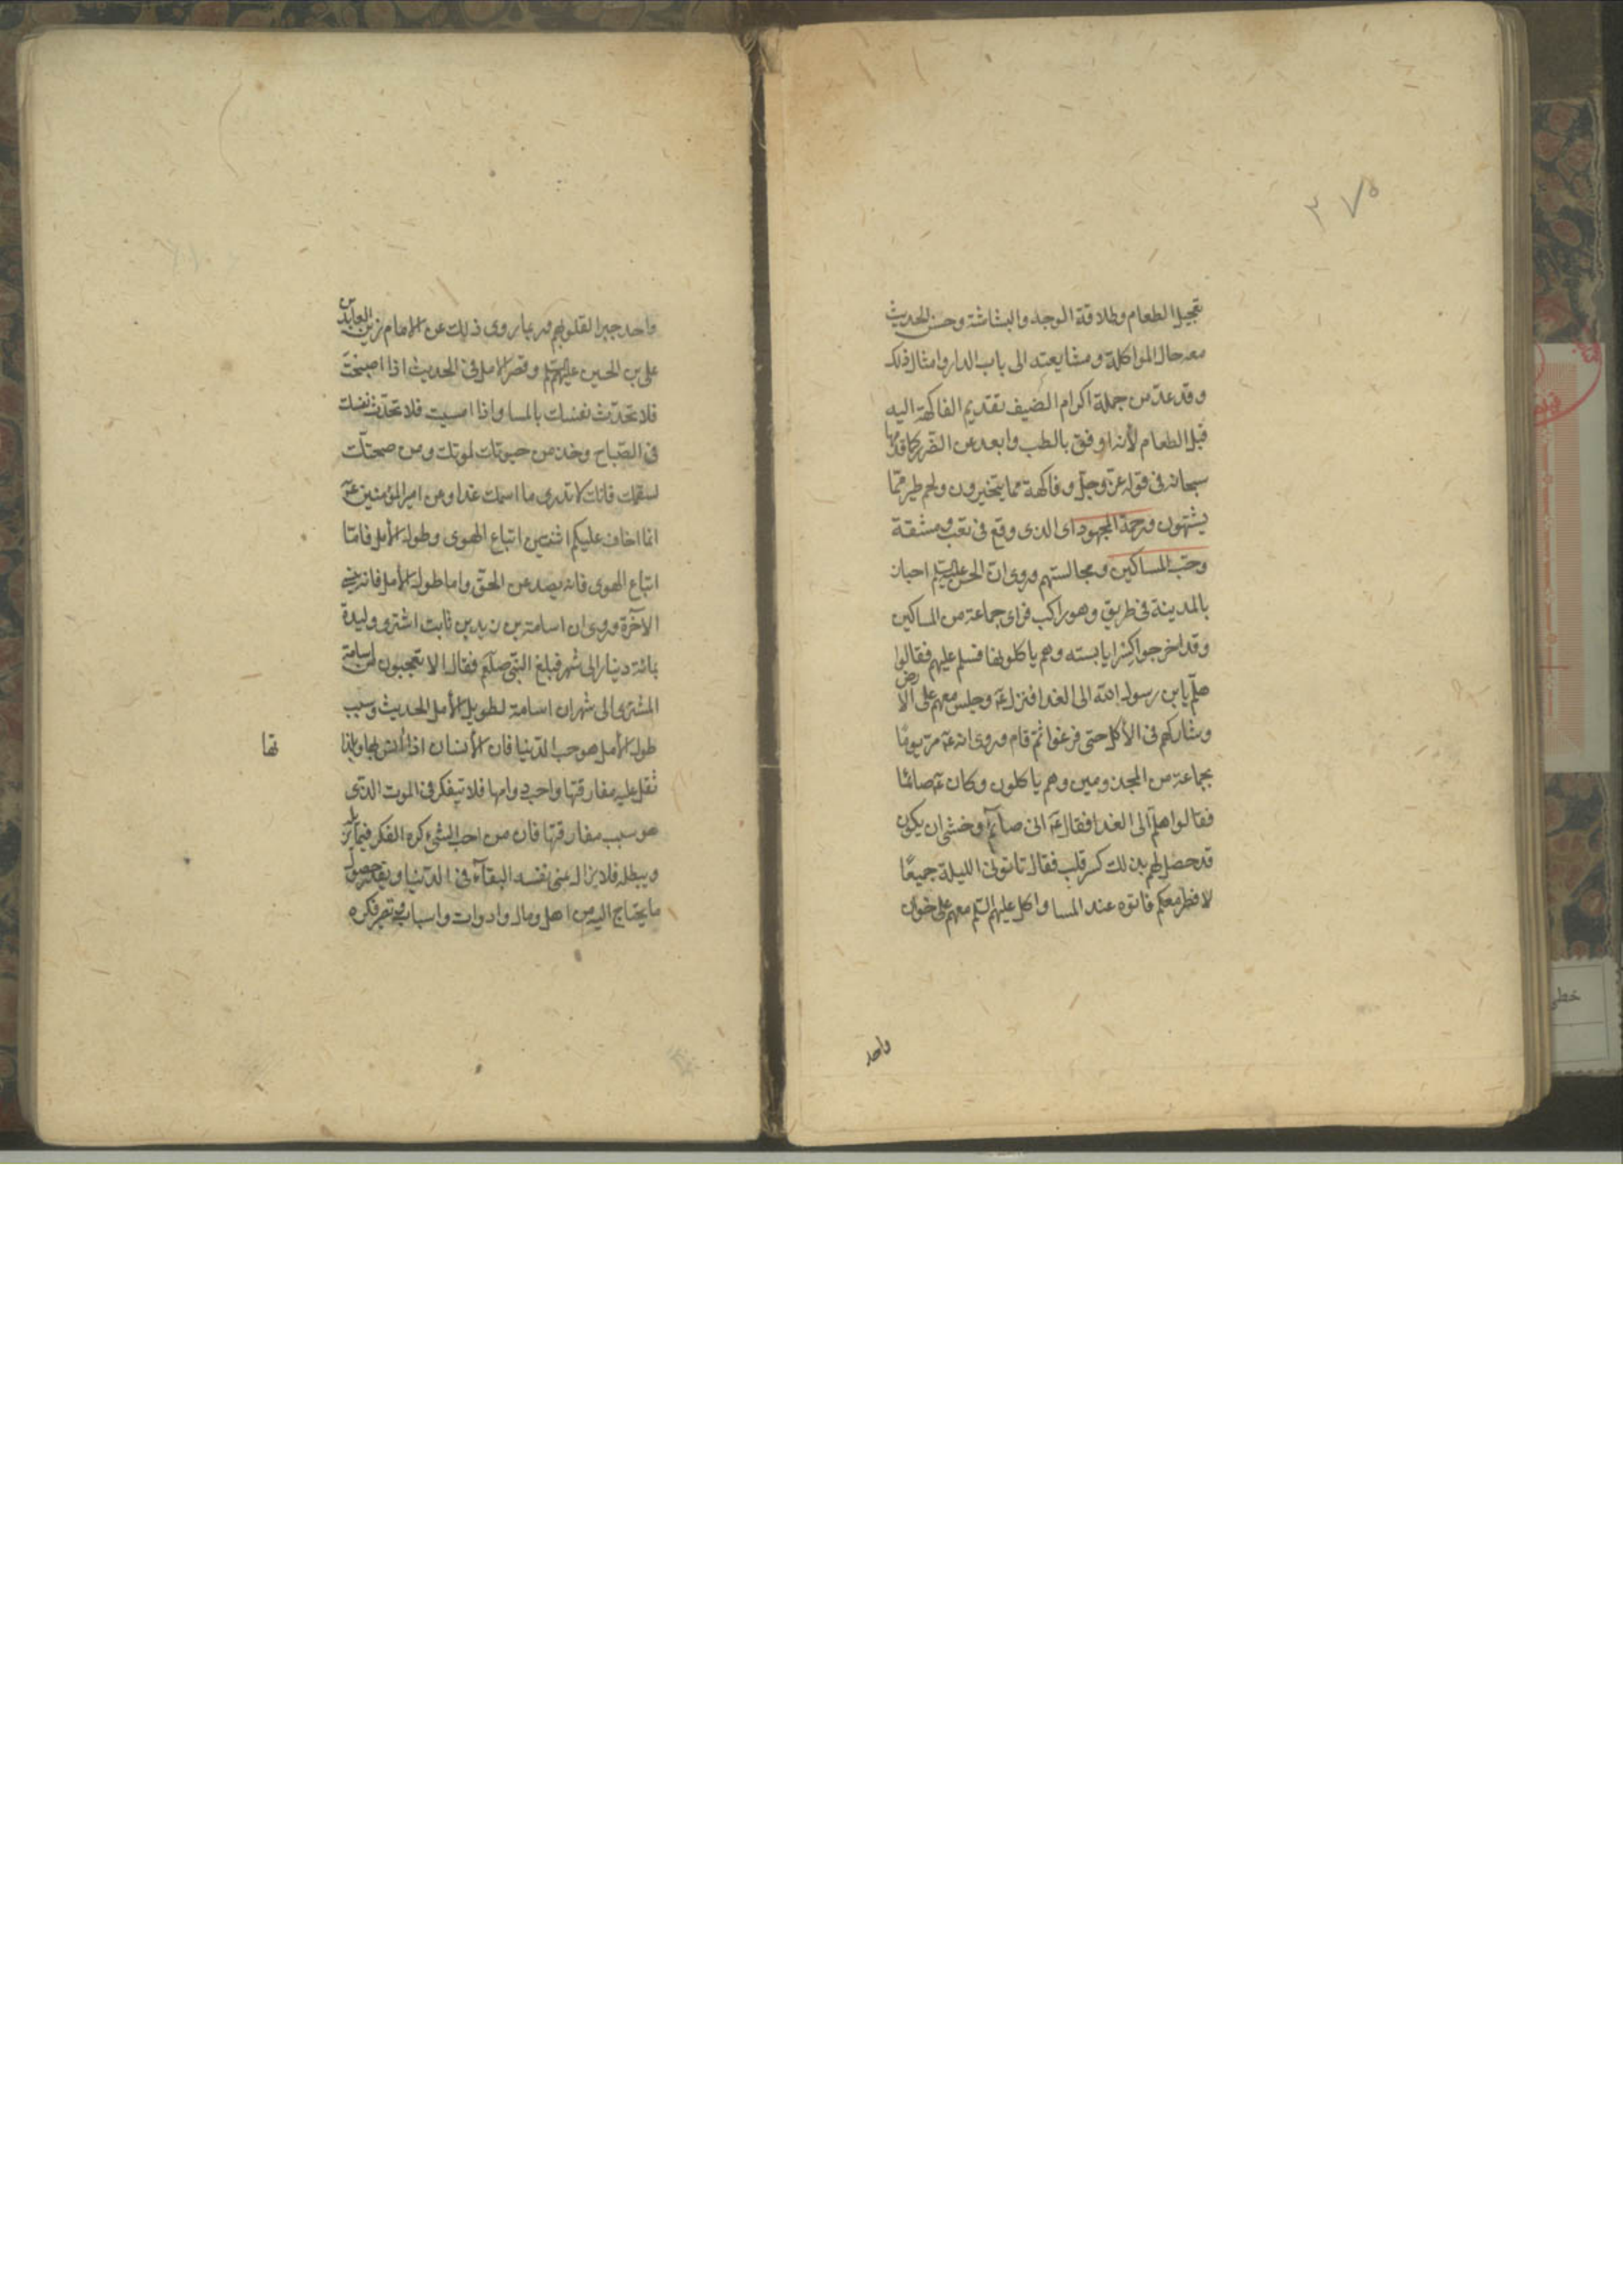 ٣٧٥
تعجيل الطعام وطلاقة الوجه والبشاشة وحسن الحديث
معه حال المواكلة ومشايعته الى باب الدار وامثال ذلك
وقد عدّ من جملة اكرام الضيف تقديم الفاكهة اليه
قبل الطعام لأنه اوفق بالطب وابعد عن الضرر كما قدمها
سبحانه فى قوله عزّ وجلّ وفاكهة مما يتخيرون ولحم طير ممّا
يشتهون ورحمة المجهود اى الذى وقع فى تعب ومشقة
وحبّ المساكين ومجالستهم وروى انّ الحسن عليه السلم احبان
بالمدينة فى طريق وهو راكب فراى جماعة من المساكين
وقد اخرجوا كِسَرا يابسته وهم ياكلونها فسلم عليهم فقالوا
هلمّ يابن رسول الله الى الغدا فنزل عۤ وجلس معهم على الارض
وشاركهم فى الأكل حتى فرغوا ثمّ قام وروى انه عۤ مرّ يومًا
بجماعة من المجذومين وهم ياكلون وكان عۤ صائمًا
فقالوا هلمّ الى الغدا فقال عۤ انى صائم وخشى ان يكون
قد حصل لهم بذلك كسر قلب فقال تاتونى الليلة جميعًا
لافطر معكم فاتوه عند المسا واكل عليهم السلم معهم على خوان
واحد
واحد جبرا لقلوبهم وربما روى ذلك عن الامام زين العابدين
على بن الحسين عليهم السلم وقصر الامل فى الحديث اذا اصبحت
فلا تحدّث نفسك بالمسا واذا امسيت فلا تحدّث نفسك
فى الصّباح وخذ من حيوتك لموتك ومن صحتك
لسقمك فانك لا تدرى ما اسمك غدا وعن امير المؤمنين عۤ
انما اخاف عليكم اثنتين اتباع الهوى وطول الأمل فامّا
اتباع الهوى فانه يصد عن الحقّ واما طول الأمل فانه ينسى
الآخرة وروى ان اسامة بن زيد بن ثابت اشترو وليدة
بمائة دينار الى شهر فبلغ النبّى صلعم فقال الا تعجبون من اسامة
المشترى الى شهر ان اسامة لطويل الأمل الحديث وسبب
طول الأمل هو حب الدّنيا فان الأنسان اذا أنس بها وبلذا
تها
ثقل عليه مفارقتها واحب دوامها فلا يتفكر فى الموت الذى
هو سبب مفارقتها فان من احب الشىء كره الفكر فيما يزيله
ويبطله فلا يزال يمنى نفسه البقآء فى الدّنيا ويقدّر حصول
ما يحتاج اليه من اهل ومال وادوات واسباب فيصير فكره